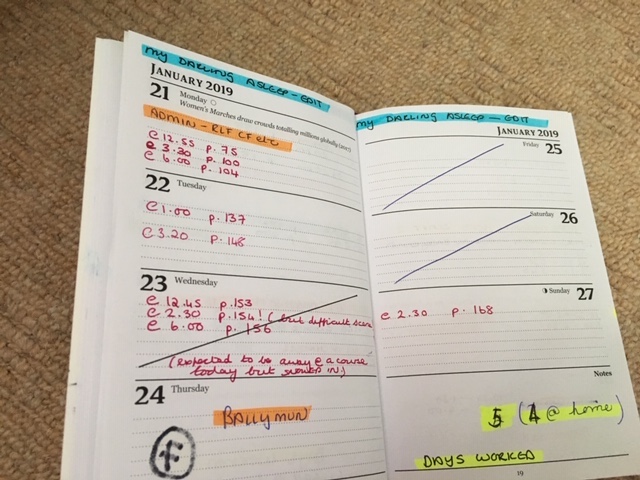 MY DARLING ASLEEP - EDIT
JANUARY 2019
21 Monday
Women's Marches draw crowds totalling millions globally (2017)
ADMIN - RLF CF etc
@ 12.55 p. 75
@ 3.30 p. 100
@ 6.00 p. 104
22 Tuesday
@ 1.00 p. 137
@ 3.20 p. 148
23 Wednesday
@ 12.45 p. 153
@ 2.30 p. 154! (but difficult scene
@ 6.00 p. 156
(expected to be away @ a course
today but snowed in)
24 Thursday
BALLYMUN
F
MY DARLING ASLEEP - EDIT
JANUARY 2019
Friday 25
Saturday 26
Sunday 27
@ 2.30 p. 168
Notes
5 (4 @ home)
DAYS WORKED
19